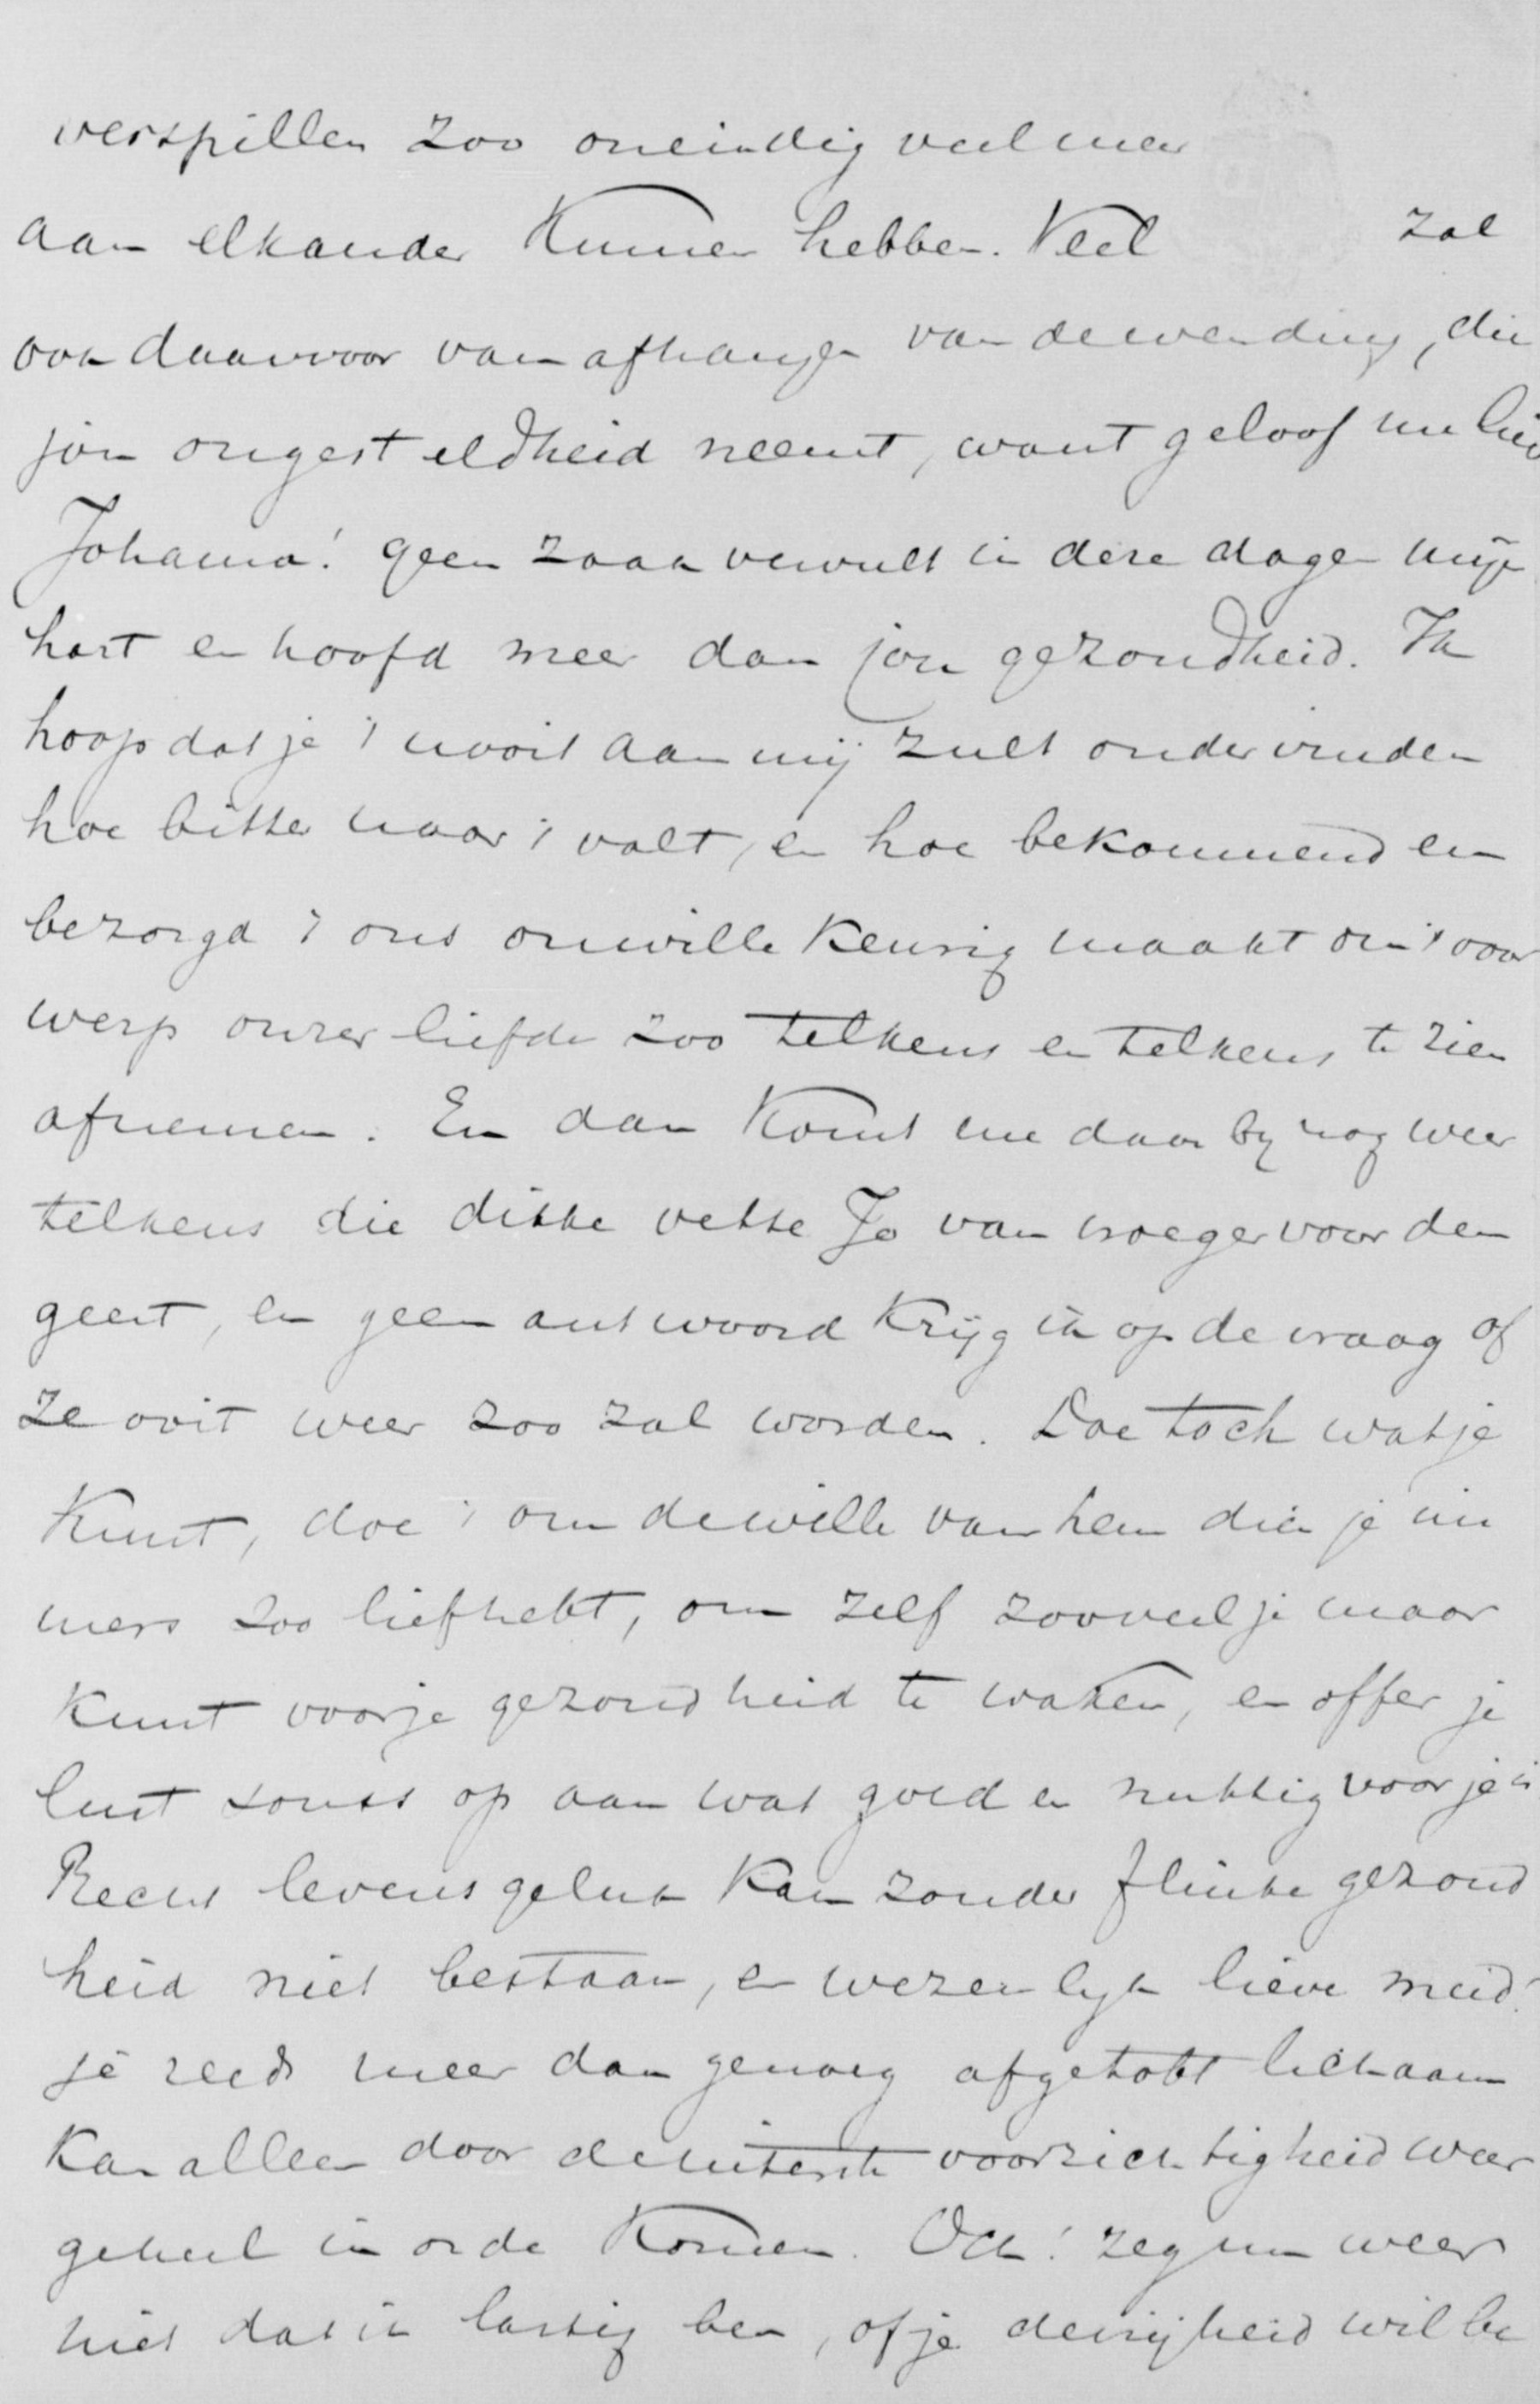 verspillen zoo oneindig veel meer
aan elkander kunnen hebben. Veel zal
ook daarvoor van afhangen van de wending, die
jou ongesteldheid neemt, want geloof me lieve
Johanna! geen zaak vervult in deze dagen mijn
hart en hoofd meer dan jou gezondheid. Ik
hoop dat je 't nooit aan mij zult ondervinden
hoe bitter naar 't valt, en hoe bekommerd en
bezorgd 't ons onwillekeurig maakt om 't voor
werp onzer liefde zoo telkens en telkens te zien
afnemen. En dan komt me daar bij nog weer
telkens die dikke vette Jo van vroeger voor den
geest, en geen antwoord krijg ik op de vraag of
ze ooit weer zoo zal worden. Doe toch wat je
kunt, doe 't om dewille van hem dien je im
mers zoo liefhebt, om zelf zooveel je maar
kunt voor je gezondheid te waken, en offer je
lust soms op aan wat goed en nuttig voor je is
Recht levensgeluk kan zonder flinke gezond
heid niet bestaan, en wezenlijk lieve meid!
je reeds meer dan genoeg afgetobt lichaam
kan alleen door de uiterste voorzichtigheid weer
geheel in orde komen. Och! zeg nu weer
niet dat ik lastig ben, of je de vrijheid wil be